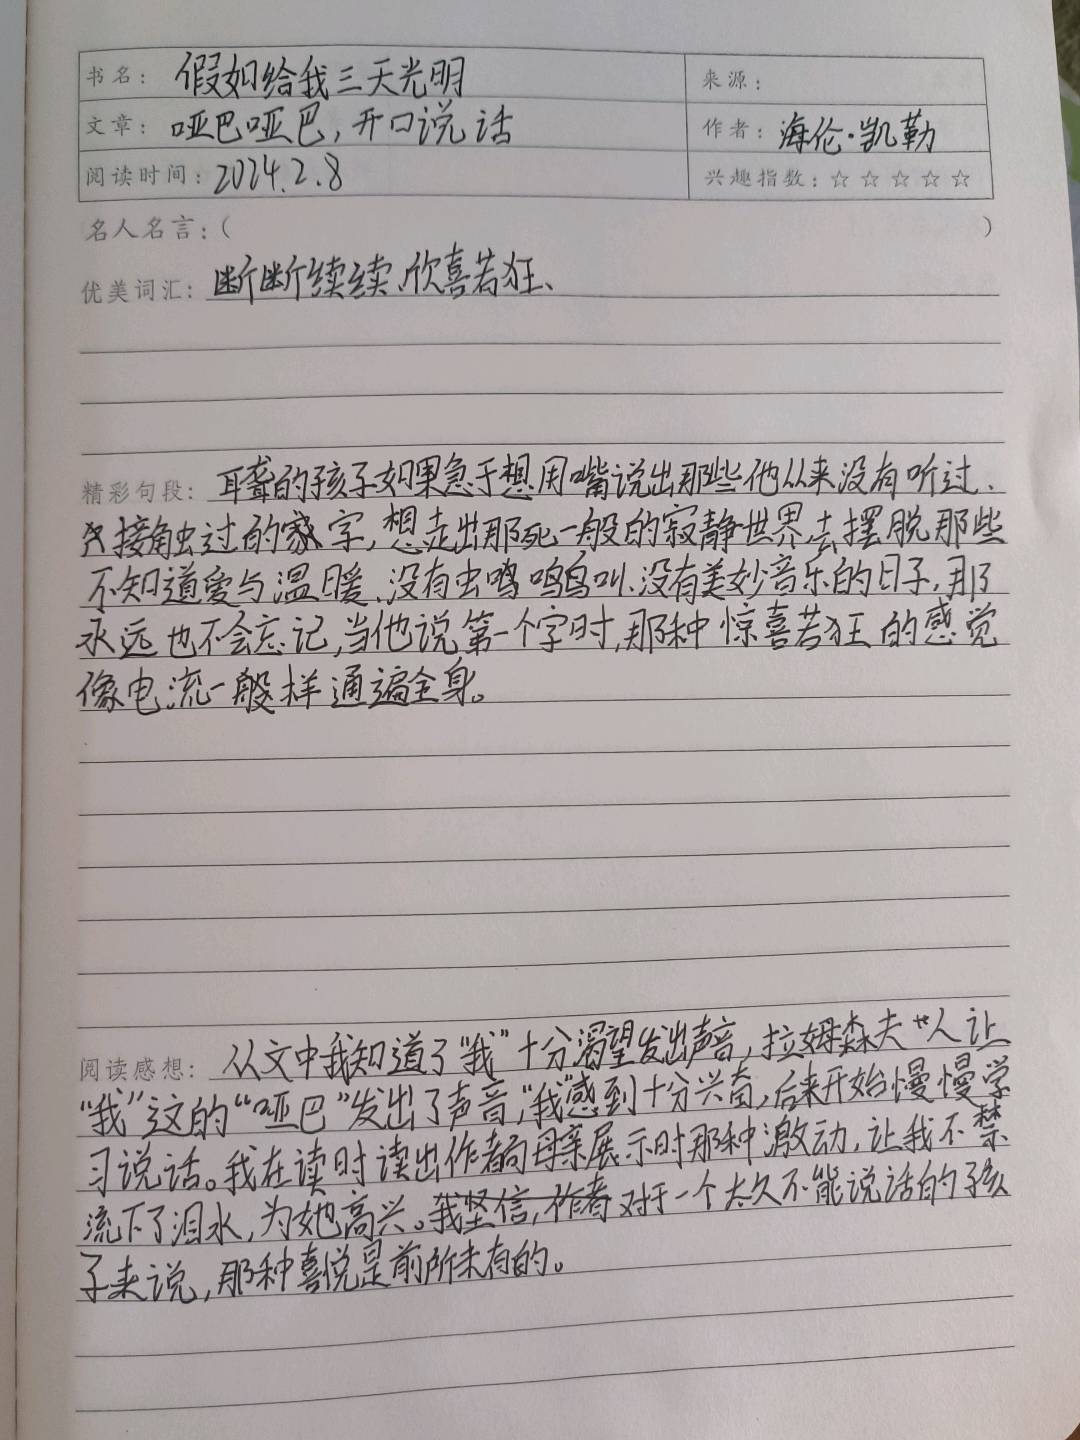 书名：假如给我三天光明
来源：
文章：哑巴哑巴，开口说话
作者：海伦·凯勒
阅读时间：2024.2.8
兴趣指数：☆☆☆☆☆
名人名言：（ ）
优美词汇：断断续续、欣喜若狂、
精彩句段：耳聋的孩子如果急于想用嘴说出那些他从来没有听过、
接触过的字，想走出那死一般的寂静世界去摆脱那些
不知道爱与温暖、没有虫鸣鸣鸟叫、没有美妙音乐的日子，那
永远也不会忘记，当他说第一个字时，那种惊喜若狂的感觉
像电流一般样通遍全身。
阅读感想：从文中我知道了“我”十分渴望发出声音，拉姆森夫人让
“我”这的“哑巴”发出了声音，“我”感到十分兴奋，后来开始慢慢学
习说话。我在读时读出作者向母亲展示时那种激动，让我不禁
流下了泪水，为她高兴。我坚信，作者对于一个太久不能说话的孩
子来说，那种喜悦是前所未有的。